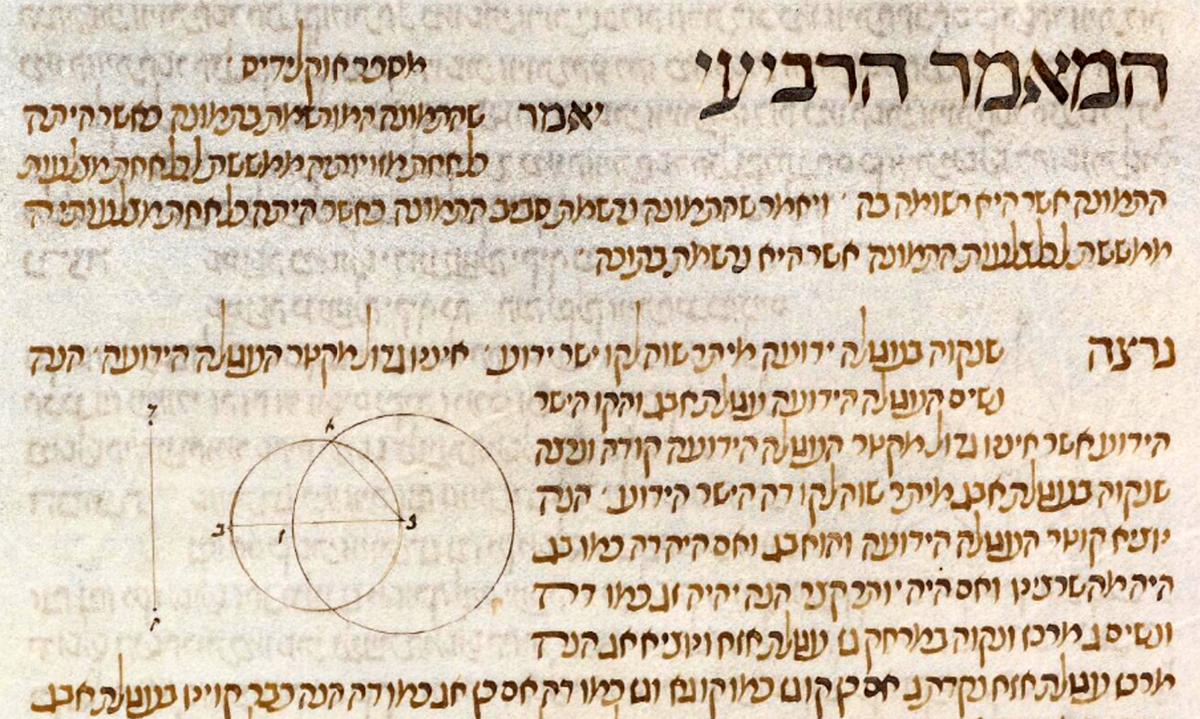 המאמר הרביעי
מספר אוקלידיס
יאמר שהתמונה המורשמת בתמונה כאשר היתה
כל אחת מזויותיה ממששת לכל אחת מצלעות
התמונה אשר היא רשומה בה ויאמר שהתמונה נרשמת סביב התמונה כאשר היתה כל אחת מצלעותיה
ממששת לכל צלעות התמונה אשר היא נרשמת בתוכה
נרצה שנקוה בעגולה ידועה מיתר שוה לקו ישר ידוע איננו גדול מקוטר העגולה הידועה הנה
נשים העגולה הידועה עגולת אבג והקו הישר
הידוע אשר איננו גדול מקוטר העגולה הידועה קו דה ונרצה
שנקוה בעגולת אבג מיתר שוה לקו דה הישר הידוע הנה
נוציא קוטר העגולה הידועה והוא בג ואם היה דה כמו בג
היה מה שרצינו ואם היה יותר קצר הנה יהיה זג כמו דה
ונשים ג מרכז ונקוה במרחק גז עגולת אזח ויוציא אג הנה
מרכז עגולת אזח נקדת ג אם כן קו גז כמו קו גא וגז כמו דה אם כן אג כמו דה הנה כבר קוינו בעגולת אבג
א
ב
ג